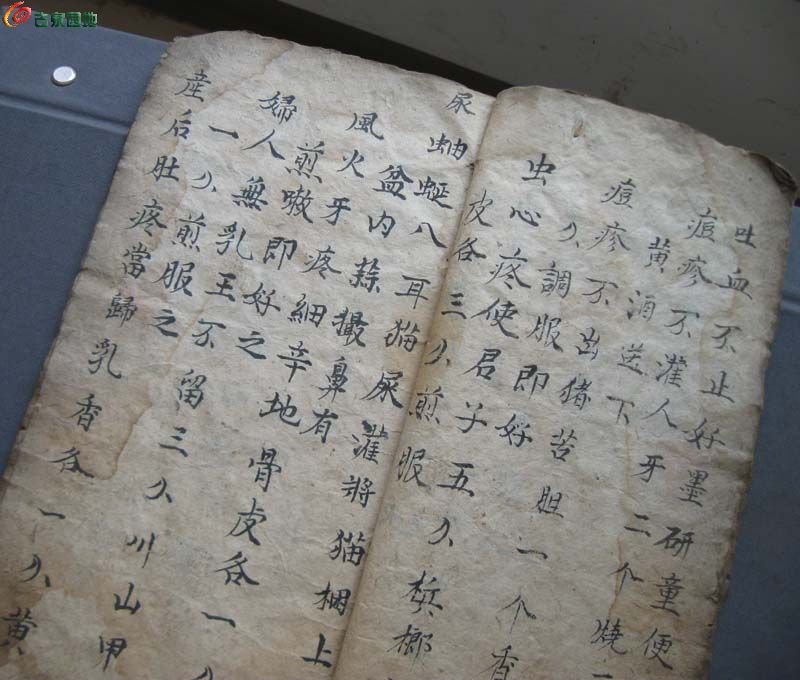 吐血不止好墨研童便
痘疹不灌人牙二个燒一
黄酒送下
痘疹不出猪苦胆一个香
調服即好
虫心疼使君子五槟榔
皮各三煎服
尿蚰蜒八耳猫尿灌將猫捆上
盆内蒜撮鼻有
風火牙疼細辛地骨皮各一
煎嗽即好之
婦人無乳王不留三川山甲
一煎服之
産后肚疼當歸乳香各一黄
古泉园地